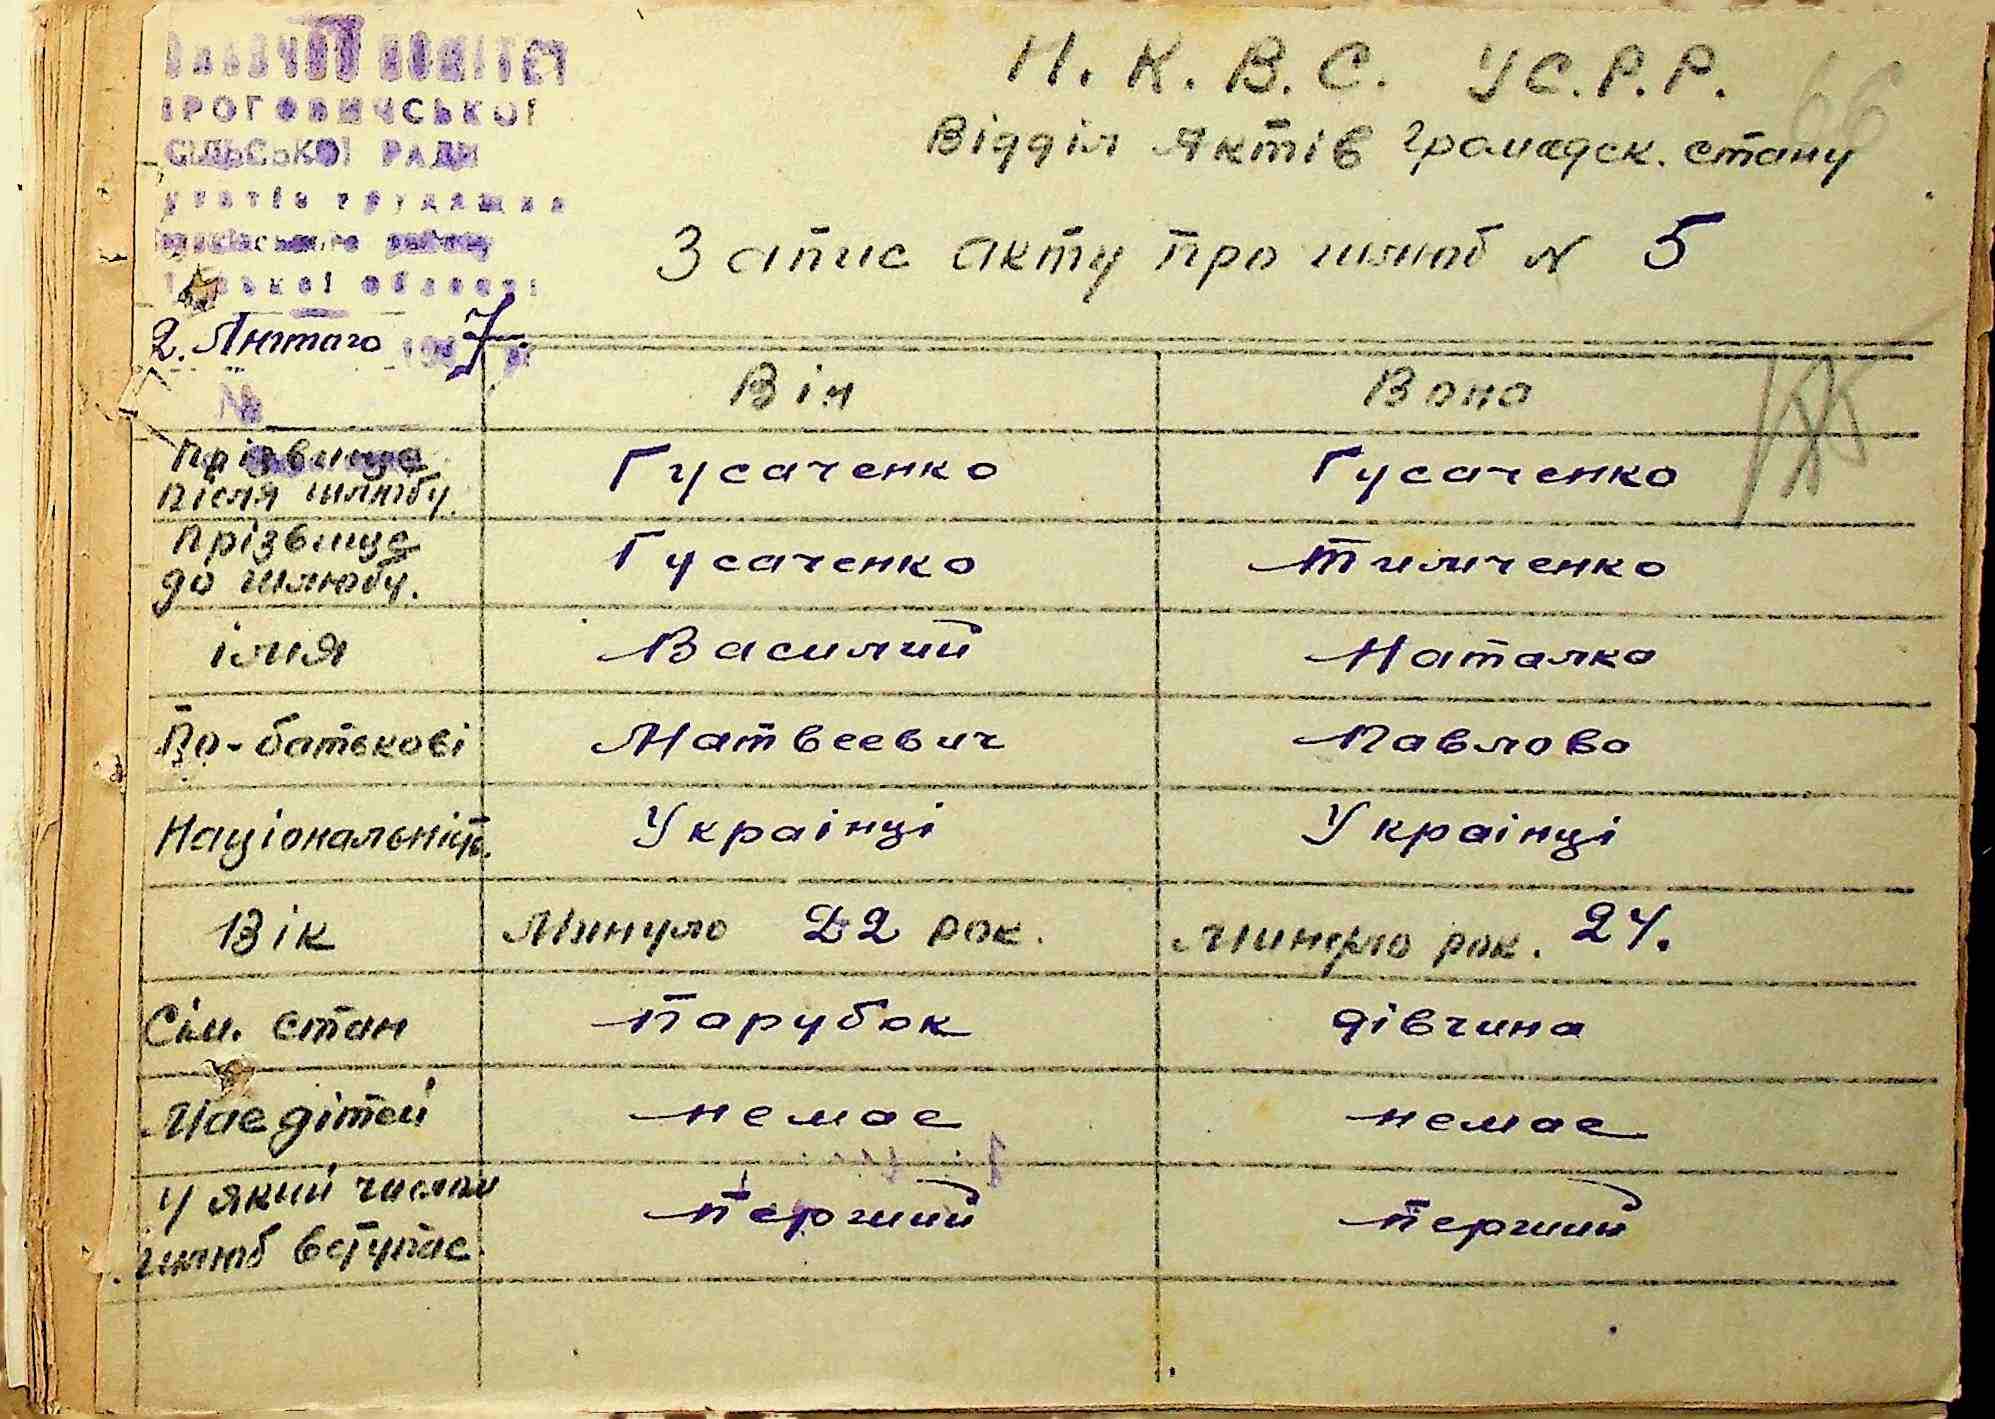 РОГОВИЧСЬКОЇ
СІЛЬСЬКОЇ РАДИ
2. Лютаго 1937 р.
№
Н. К. В. С. УС.Р.Р.
66
Відділ Актів Громадск. стану
Запис акту про шлюб N 5
Він Вона
Прізвище після шлюбу. Гусаченко Гусаченко
Прізвище до шлюбу. Гусаченко Тимченко
імя Василий Наталка
По-батькові Матвеевич Павлова
Національність. Украінці Украінці
Вік Минуло 22 рок. Минуло рок. 24.
Сім. стан Парубок дівчина
Має дітей немає немає
У який числом шлюб вступає. перший перший